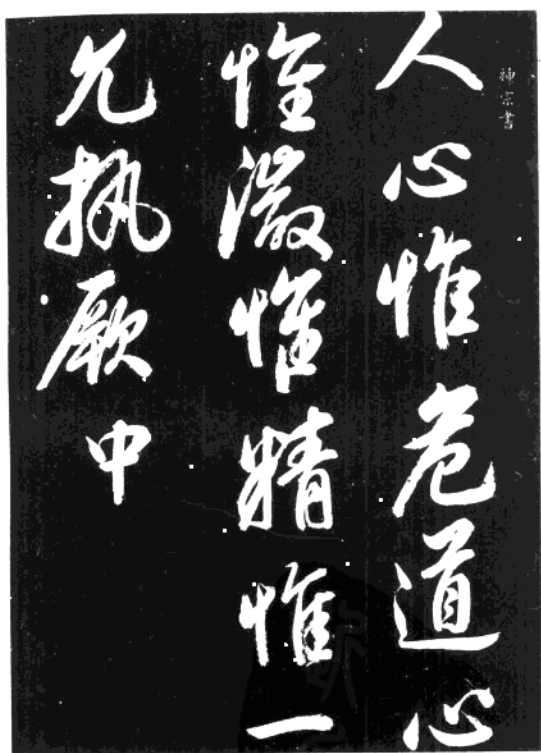 神宗書
人心惟危道心
惟微惟精惟一
允執厥中